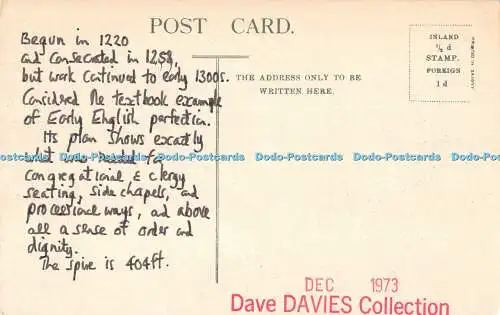 POST CARD.
Begun in 1220
and consecrated in 1258,
but work continued to early 1300s.
Considered the textbook example
of Early English perfection.
Its plan shows exactly
what was needed for
congregational & clergy
seating, side chapels, and
processional ways, and above
all a sense of order and
dignity.
The spire is 404ft.
THE ADDRESS ONLY TO BE
WRITTEN HERE.
INLAND
½ d
STAMP.
FOREIGN
1 d
Dodo-Postcards Dodo-Postcards Dodo-Postcards Dodo-Postcards Dodo-Postcards Dodo-Postcards
DEC 1973
Dave DAVIES Collection